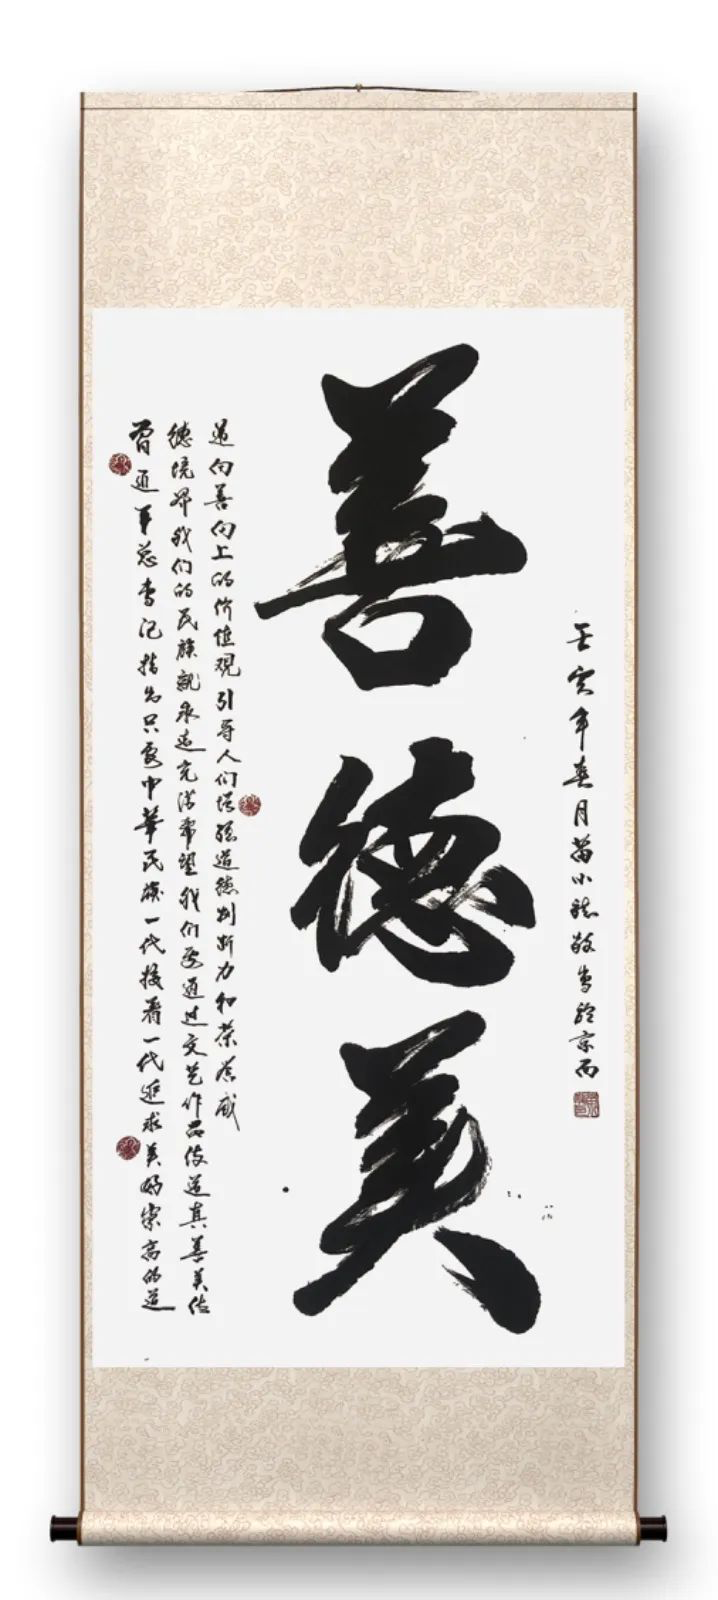 善德美
習近平总书记指出只要中華民族一代接着一代追求美好崇高的道
德境界我们的民族就永远充满希望我们要通过文艺作品传递真善美传
递向善向上的价值观引导人们增强道德判断力和荣誉感
壬寅年春月苗小敬書於京西